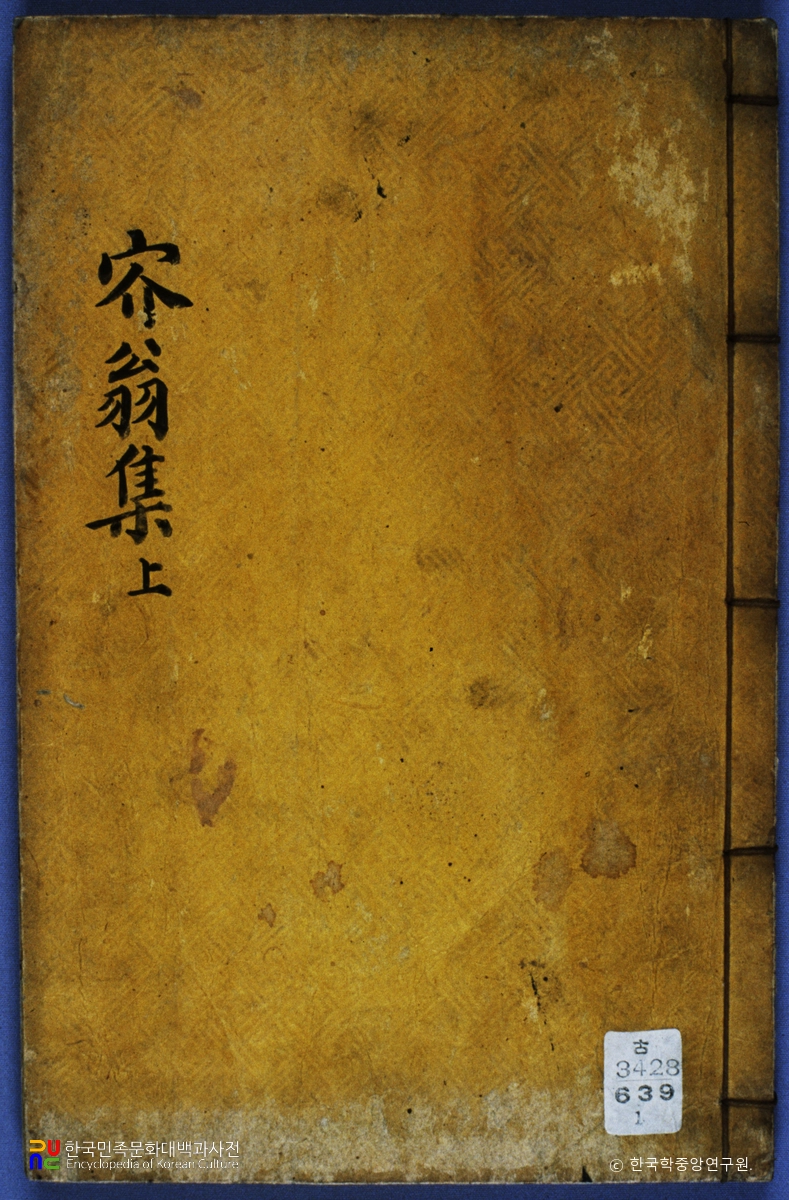 翁集
上
古
3428
639
1
한국민족문화대백과사전
Encyclopedia of Korean Culture
© 한국학중앙연구원.